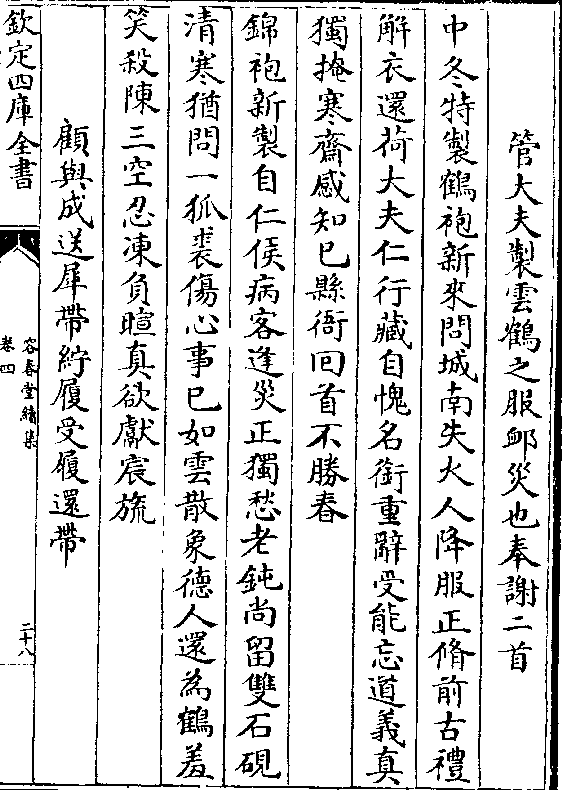 管大夫製雲鶴之服䘏災也奉謝二首
中冬特製鶴袍新來問城南失火人降服正脩前古禮
解衣還荷大夫仁行藏自愧名銜重辭受能忘道義真
獨掩寒齋感知已縣衙回首不勝春
錦袍新製自仁侯病客逢災正獨愁老鈍尚留雙石硯
清寒猶問一狐裘傷心事已如雲散象德人還為鶴羞
笑殺陳三空忍凍負暄真欲獻宸旒
顧與成送犀帶紵履受履還帶
欽定四庫全書
容春堂續集
卷四
二十八